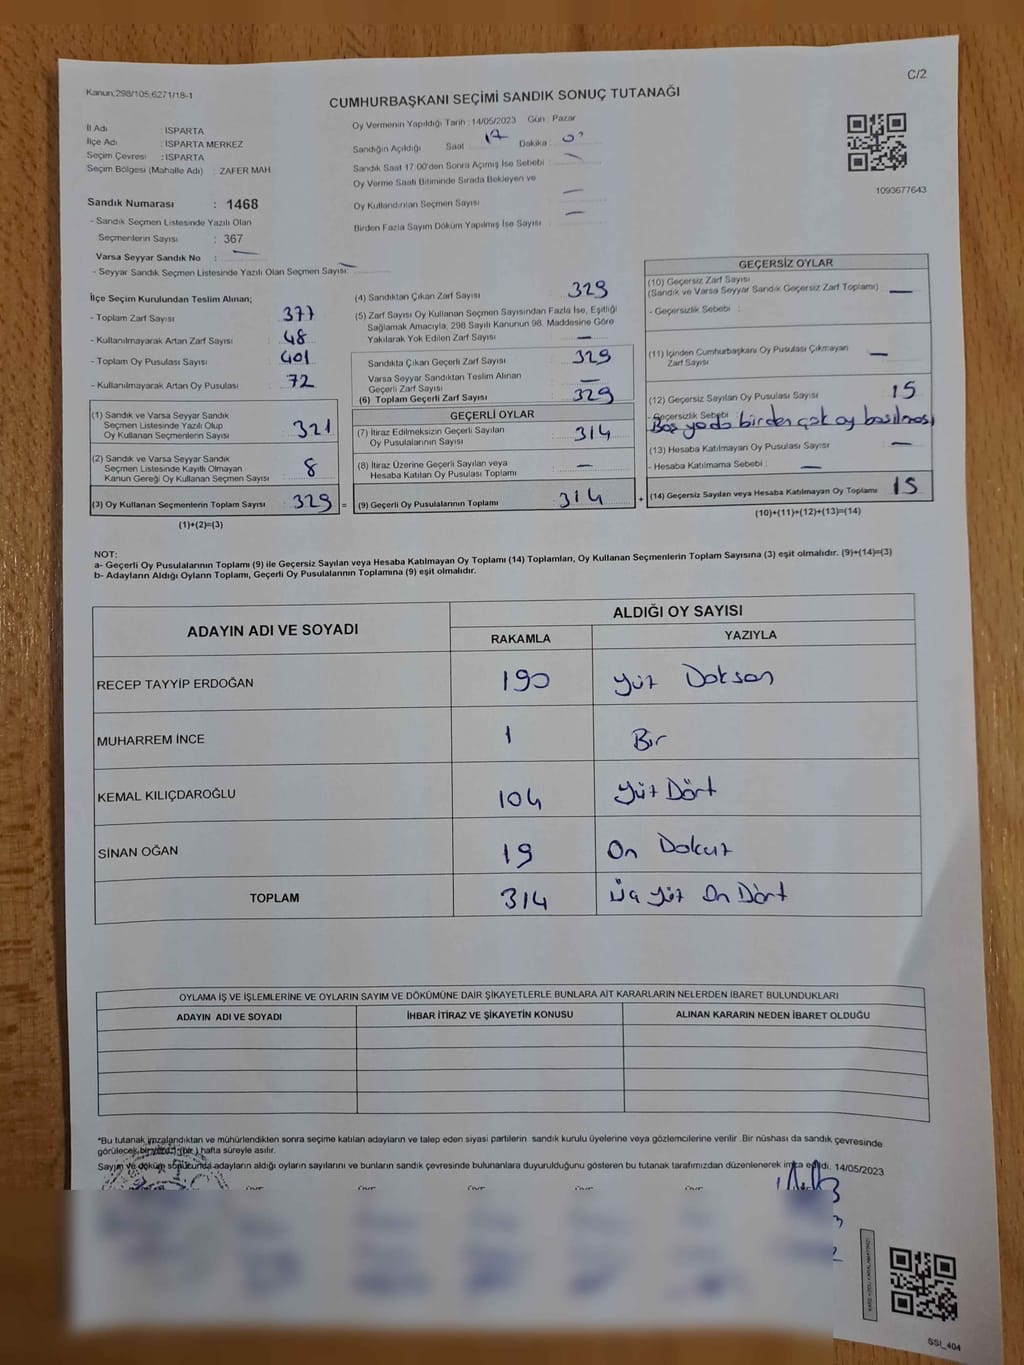 C/2
Kanun.298/105,6271/18-1
CUMHURBAŞKANI SEÇİMİ SANDIK SONUÇ TUTANAĞI
İl Adı : ISPARTA
İlçe Adı : ISPARTA MERKEZ
Seçim Çevresi : ISPARTA
Seçim Bölgesi (Mahalle Adı) : ZAFER MAH
Sandık Numarası : 1468
- Sandık Seçmen Listesinde Yazılı Olan
Seçmenlerin Sayısı : 367
Varsa Seyyar Sandık No : —
- Seyyar Sandık Seçmen Listesinde Yazılı Olan Seçmen Sayısı: —
Oy Vermenin Yapıldığı Tarih : 14/05/2023 Gün : Pazar
Sandığın Açıldığı Saat : 17 Dakika :
Sandık Saat 17:00'den Sonra Açımış İse Sebebi : —
Oy Verme Saati Bitiminde Sırada Bekleyen ve
Oy Kullandırılan Seçmen Sayısı : —
Birden Fazla Sayım Döküm Yapılmış İse Sayısı : —
1093677643
İlçe Seçim Kurulundan Teslim Alınan;
- Toplam Zarf Sayısı : 377
- Kullanılmayarak Artan Zarf Sayısı : 48
- Toplam Oy Pusulası Sayısı : 401
- Kullanılmayarak Artan Oy Pusulası : 72
(1) Sandık ve Varsa Seyyar Sandık
Seçmen Listesinde Yazılı Olup
Oy Kullanan Seçmenlerin Sayısı : 321
(2) Sandık ve Varsa Seyyar Sandık
Seçmen Listesinde Kayıtlı Olmayan
Kanun Gereği Oy Kullanan Seçmen Sayısı : 8
(3) Oy Kullanan Seçmenlerin Toplam Sayısı : 329 =
(1)+(2)=(3)
(4) Sandıktan Çıkan Zarf Sayısı : 329
(5) Zarf Sayısı Oy Kullanan Seçmen Sayısından Fazla İse, Eşitliği
Sağlamak Amacıyla, 298 Sayılı Kanunun 98. Maddesine Göre
Yakılarak Yok Edilen Zarf Sayısı : —
Sandıkta Çıkan Geçerli Zarf Sayısı : 329
Varsa Seyyar Sandıktan Teslim Alınan
Geçerli Zarf Sayısı : —
(6) Toplam Geçerli Zarf Sayısı : 329
GEÇERLİ OYLAR
(7) İtiraz Edilmeksizin Geçerli Sayılan
Oy Pusulalarının Sayısı : 314
(8) İtiraz Üzerine Geçerli Sayılan veya
Hesaba Katılan Oy Pusulası Toplamı : —
(9) Geçerli Oy Pusulalarının Toplamı : 314 +
GEÇERSİZ OYLAR
(10) Geçersiz Zarf Sayısı
(Sandık ve Varsa Seyyar Sandık Geçersiz Zarf Toplamı) : —
- Geçersizlik Sebebi :
(11) İçinden Cumhurbaşkanı Oy Pusulası Çıkmayan
Zarf Sayısı : —
(12) Geçersiz Sayılan Oy Pusulası Sayısı : 15
- Geçersizlik Sebebi : Boş yada birden çok oy basılması
(13) Hesaba Katılmayan Oy Pusulası Sayısı : —
- Hesaba Katılmama Sebebi : —
(14) Geçersiz Sayılan veya Hesaba Katılmayan Oy Toplamı : 15
(10)+(11)+(12)+(13)=(14)
NOT:
a- Geçerli Oy Pusulalarının Toplamı (9) ile Geçersiz Sayılan veya Hesaba Katılmayan Oy Toplamı (14) Toplamları, Oy Kullanan Seçmenlerin Toplam Sayısına (3) eşit olmalıdır. (9)+(14)=(3)
b- Adayların Aldığı Oyların Toplamı, Geçerli Oy Pusulalarının Toplamına (9) eşit olmalıdır.
ADAYIN ADI VE SOYADI
ALDIĞI OY SAYISI
RAKAMLA YAZIYLA
RECEP TAYYİP ERDOĞAN 190 Yüz Doksan
MUHARREM İNCE 1 Bir
KEMAL KILIÇDAROĞLU 104 Yüz Dört
SİNAN OĞAN 19 On Dokuz
TOPLAM 314 Üç Yüz On Dört
OYLAMA İŞ VE İŞLEMLERİNE VE OYLARIN SAYIM VE DÖKÜMÜNE DAİR ŞİKAYETLERLE BUNLARA AİT KARARLARIN NELERDEN İBARET BULUNDUKLARI
ADAYIN ADI VE SOYADI İHBAR İTİRAZ VE ŞİKAYETİN KONUSU ALINAN KARARIN NEDEN İBARET OLDUĞU
*Bu tutanak imzalandıktan ve mühürlendikten sonra seçime katılan adayların ve talep eden siyasi partilerin sandık kurulu üyelerine veya gözlemcilerine verilir. Bir nüshası da sandık çevresinde
görülecek bir yere 1 (bir) hafta süreyle asılır.
Sayım ve döküm sonucunda adayların aldığı oyların sayılarını ve bunların sandık çevresinde bulunanlara duyurulduğunu gösteren bu tutanak tarafımızdan düzenlenerek imza edildi. 14/05/2023
SSI_404